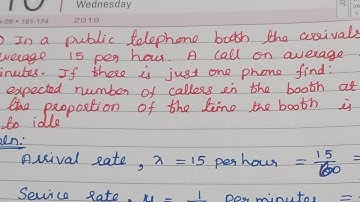 Wednesday
28 • 181-174
2019
In a public telephone booth the arrivals
verage 15 per hour. A call on average
nutes. If there is just one phone find:
expected number of callers in the booth at
the proportion of the time the booth is
to idle
oln:
Arrival rate, λ = 15 per hour = 15/60 =
Service rate, μ = 1 per minutes =